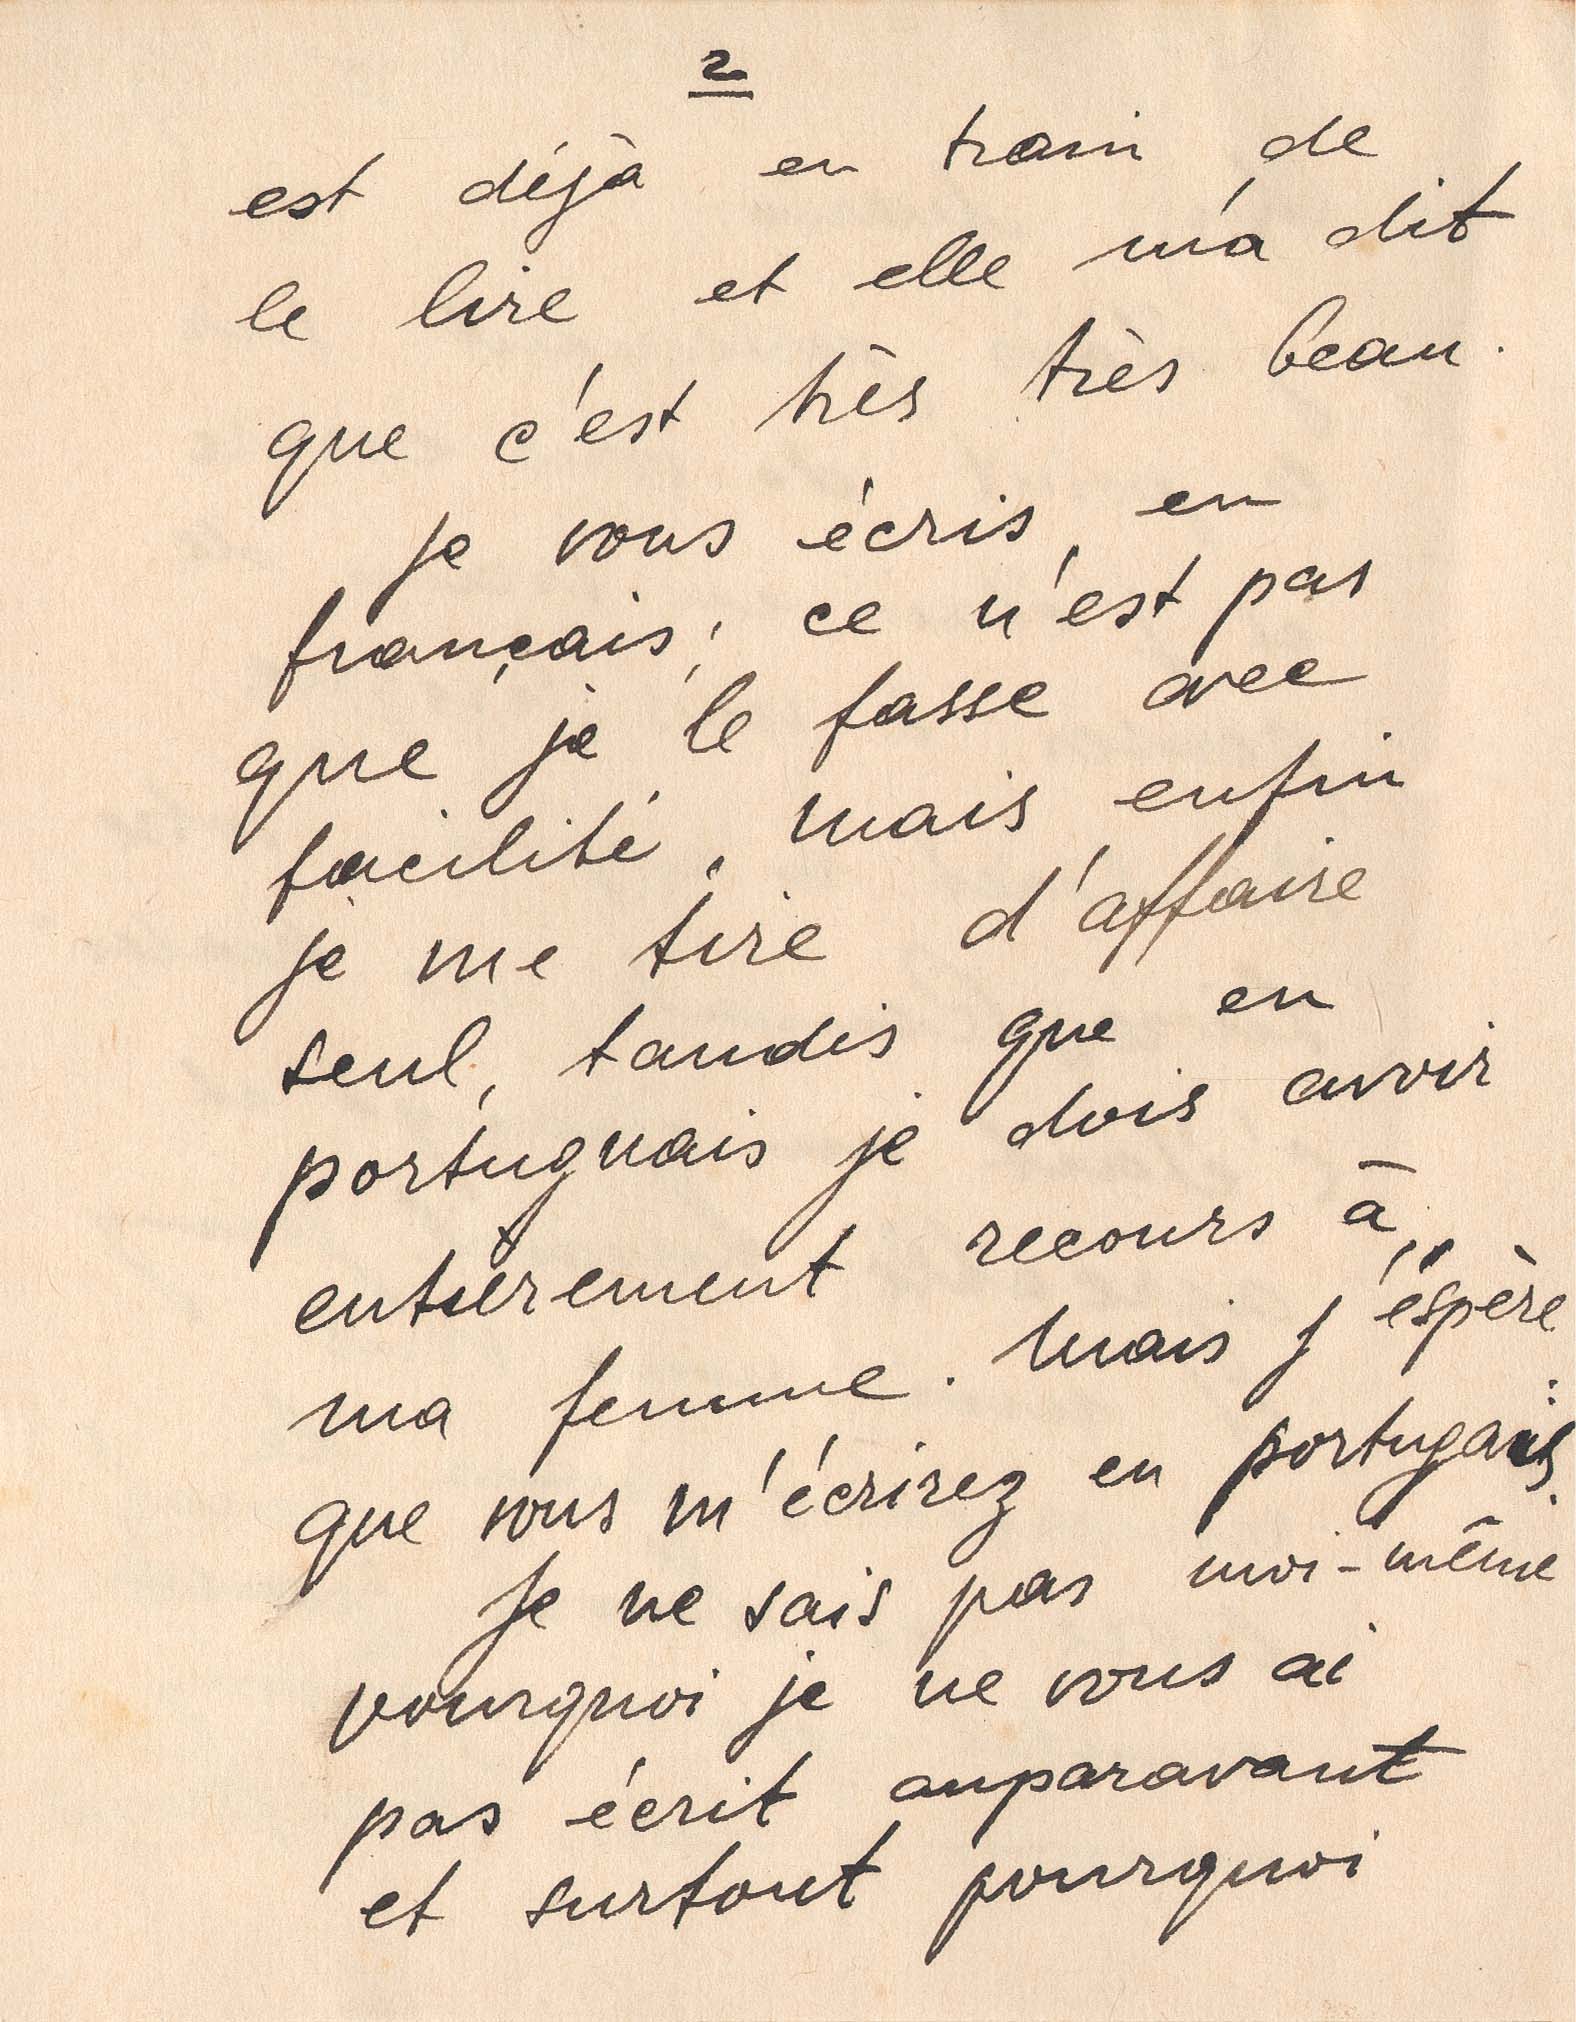 2
est déjà en train de
le lire et elle m'a dit
que c'est très très beau.
Je vous écris en
français; ce n'est pas
que je le fasse avec
facilité, mais enfin
je me tire d'affaire
seul, tandis que en
portuguais je dois avoir
entièrement recours à
ma femme. Mais j'espère
que vous m'écrirez en portugais.
Je ne sais pas moi-même
pourquoi je ne vous ai
pas écrit auparavant
et surtout pourquoi